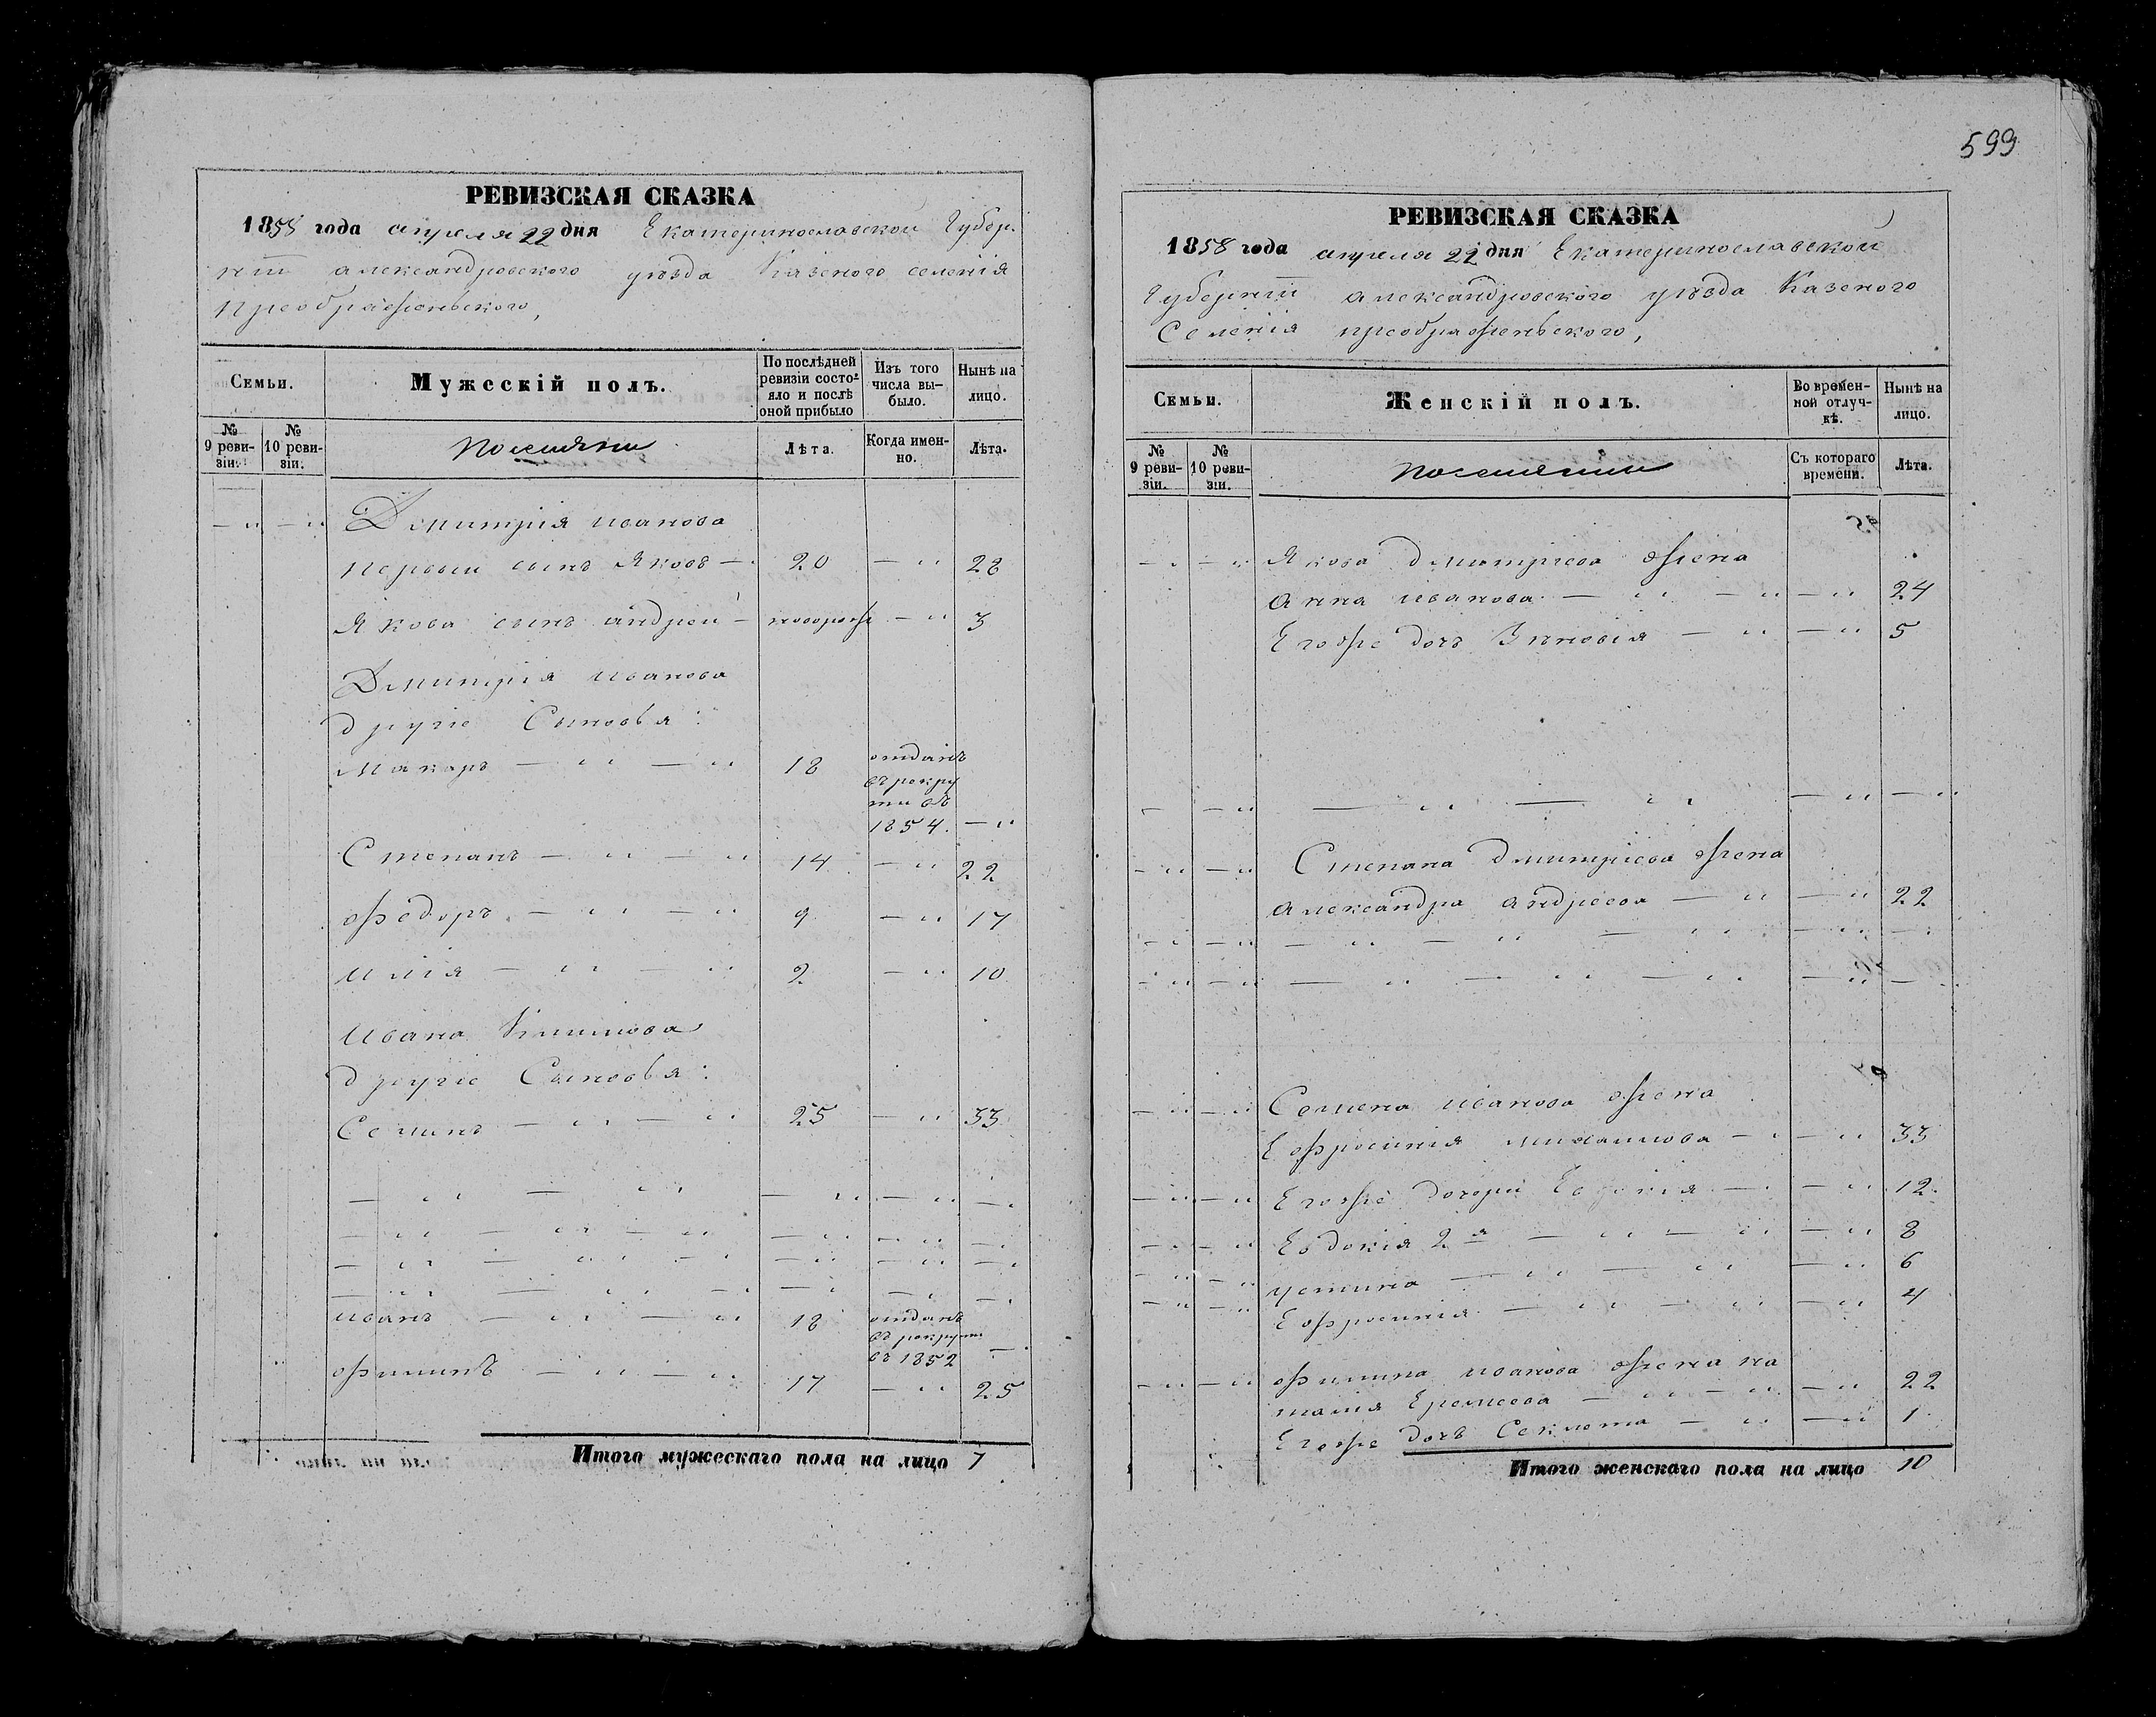 599
РЕВИЗСКАЯ СКАЗКА
1858 года апреля 22 дня Екатеринославской Губер.
ніи александровского уѣзда Казеного селенія
преображеньского,
Семьи.
Мужескій полъ.
По послѣдней ревизіи состояло и послѣ оной прибыло
Изъ того числа выбыло.
Нынѣ на лицо.
№ 9 ревизіи.
№ 10 ревизіи.
поселяни
Лѣта.
Когда именно.
Лѣта.
— " — " Дмитрія иванова
первый сынъ Яковъ — 20 — " 28
Якова сынъ андрей — новорож — " 3
Дмитрія иванова
другіе Сыновья:
Макаръ — " — " 18 отданъ
въ рекру
ти въ
1854. — "
Степанъ — " — " 14 — " 22
Федоръ — " — " 9 — " 17
илія — " — " 2 — " 10
ивана Климова
другіе Сыновья:
Семенъ — " — " 25 — " 33
иванъ — " — " 18 отданъ
въ рекруты
въ 1852 —
Филипъ — " — " 17 — " 25
Итого мужескаго пола на лицо 7
РЕВИЗСКАЯ СКАЗКА
1858 года апреля 22 дня Екатеринославской
Губерніи александровского уѣзда Казеного
Селенія преображеньского,
Семьи.
Женскій полъ.
Во временной отлучкѣ.
Нынѣ на лицо.
№ 9 ревизіи.
№ 10 ревизіи.
Съ котораго времени.
Лѣта.
— " — " Якова Дмитріева жена
анна иванова — " — " — " 24
Егоже дочь Зиновія — " — " 5
— — " — " — " — " — "
— " — " Степана Дмитріева жена
александра андреева — " — " 22
— " — " Семена иванова жена
Ефросинія михаилова — " — " 33
— " — " Егоже дочери Евдокія — " — " 12
— " — " Евдокія 2я — " — " — " 8
— " — " устина — " — " — " 6
— " — " Ефросинія — " — " — " 4
— " — " Филипа иванова жена на
талія Еремеева — " — " — " 22
Егоже дочь Секлета — " — " 1
Итого женскаго пола на лицо 10